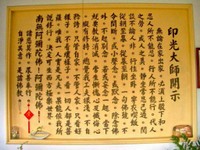 印光大師開示
無論在家出家 必須上敬下和
忍人所不能忍 行人所不能行
代人之勞 成人之美 靜坐常思己過 閒
談不論人非 行住坐臥 穿衣吃飯
從朝至暮 從暮至朝 一句佛號 不
令間斷 或小聲念 或默念 除念佛
外 不起別念 若或妄念一起 當下就
要教他消滅 常生慚愧心 及生懺
悔心 縱有修持 總覺我工夫很淺 不自
矜誇 只管自家 不管人家 只看好
樣子 不看壞樣子 看一切人皆是菩
薩 唯我一人實是凡夫 果能依我所
說修行 決定可生西方極樂世界
南無阿彌陀佛 阿彌陀佛
諸惡莫作 眾善奉行
自淨其意 是諸佛教